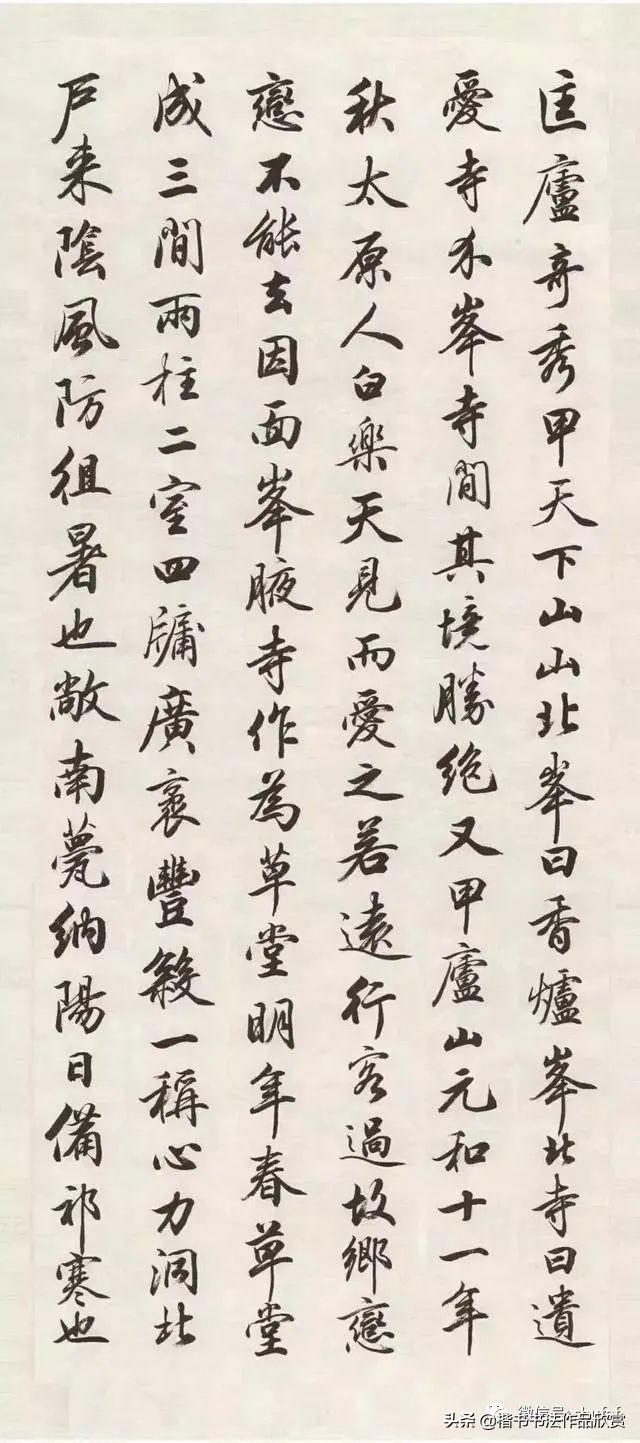 匡廬奇秀甲天下山山北峯曰香爐峯北寺曰遺
愛寺介峯寺間其境勝絶又甲廬山元和十一年
秋太原人白樂天見而愛之若遠行客過故鄉戀
戀不能去因面峯腋寺作為草堂明年春草堂
成三間兩柱二室四牖廣袤豐殺一稱心力洞北
戶来陰風防徂暑也敞南甍納陽日備祁寒也
微信号
头条 @楷书书法作品欣赏